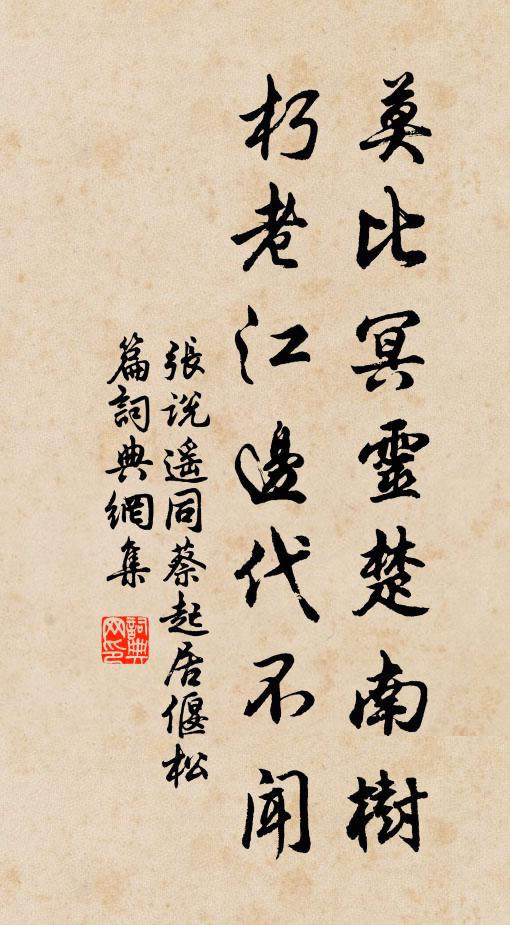 莫比冥靈楚南樹
朽老江邊代不聞
張说遥同蔡起居偃松
篇詞典網集
詞典网印